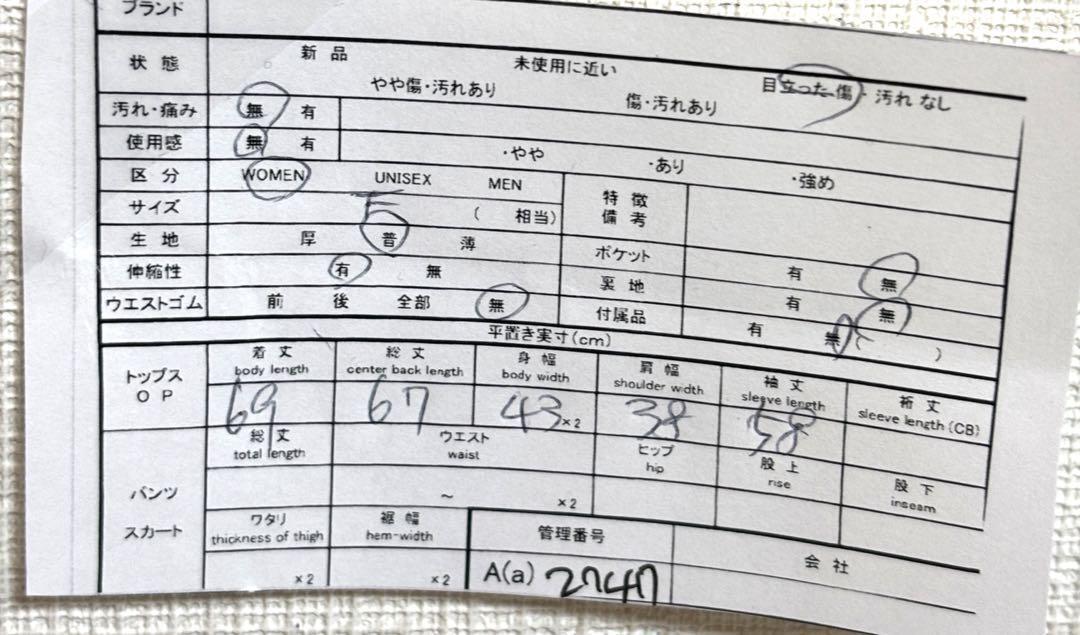 ブランド
状態 新品 未使用に近い 目立った傷・汚れ なし
やや傷・汚れあり 傷・汚れあり
汚れ・痛み 無 有
使用感 無 有 ・やや ・あり ・強め
区分 WOMEN UNISEX MEN 特徴
備考
サイズ F ( 相当)
生地 厚 普 薄 ポケット 有 無
伸縮性 有 無 裏地 有 無
ウエストゴム 前 後 全部 無 付属品 有 無 ( )
平置き実寸(cm)
トップス
OP
着丈 総丈 身幅 肩幅 袖丈 裄丈
body length center back length body width shoulder width sleeve length sleeve length (CB)
69 67 43×2 38 58
パンツ
スカート
総丈 ウエスト ヒップ 股上 股下
total length waist hip rise inseam
～ ×2
ワタリ 裾幅 管理番号 会社
thickness of thigh hem-width
×2 ×2 A(a) 2747